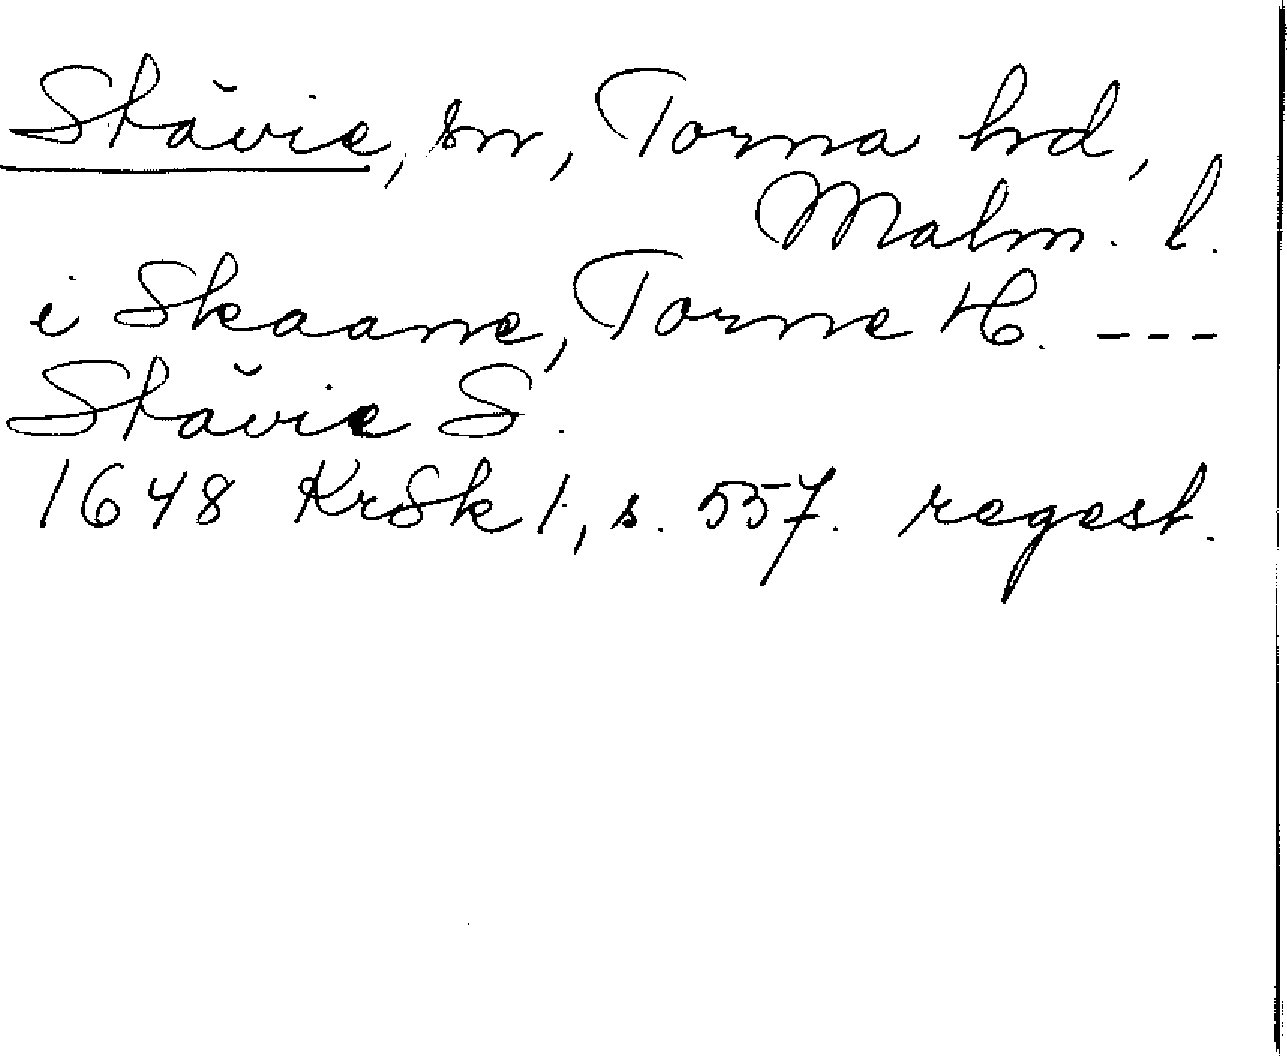 Stävie, sn, Torna hd,
Malm. l.
i Skaane, Torne H. ---
Stävie S.
1648 KrSk 1, s. 557. regest.